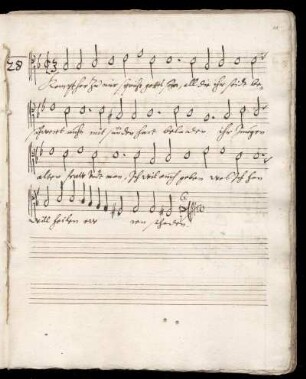 28
Kompt her zu mir, spricht gottes sohn, all die ihr seidt be-
schweret nuhn mit sünden hart beladen ihr Jungen
alten frauw undt man, Ich wil euch geben was Ich han
will heilen ewren schaden